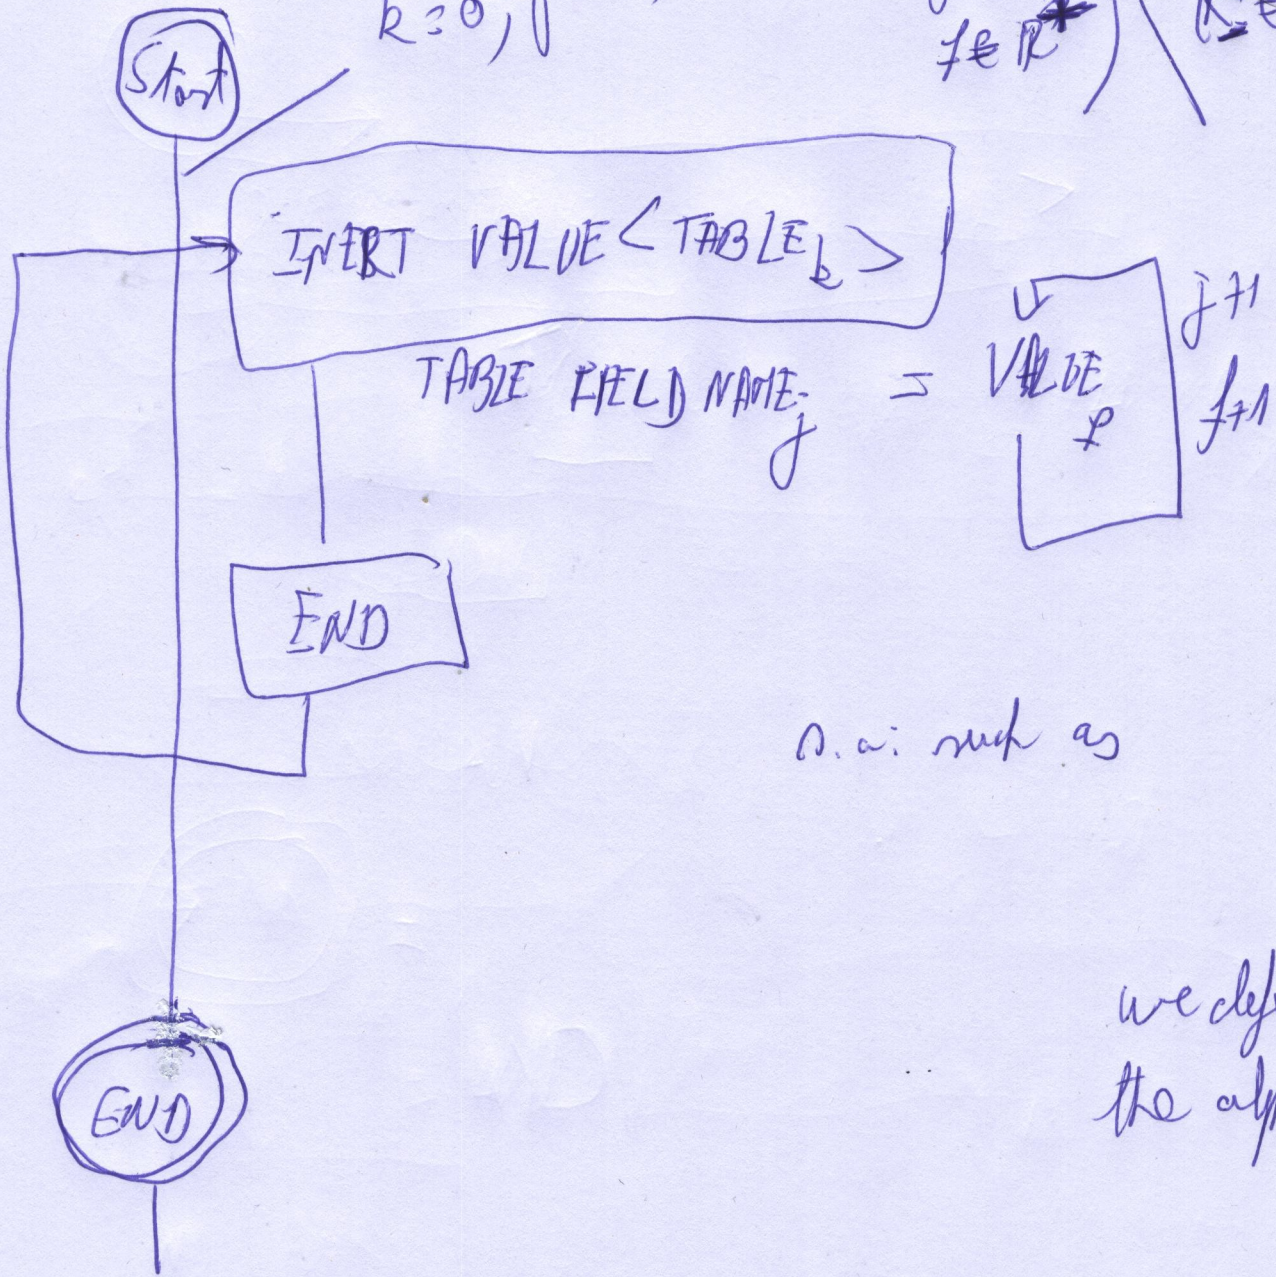 k = 0, j
f ∈ R*
Start
INERT VALUE < TABLE k >
j+1
TABLE FIELD NAME j = VALUE f
f+1
END
s.a: such as
we def
the alp
END